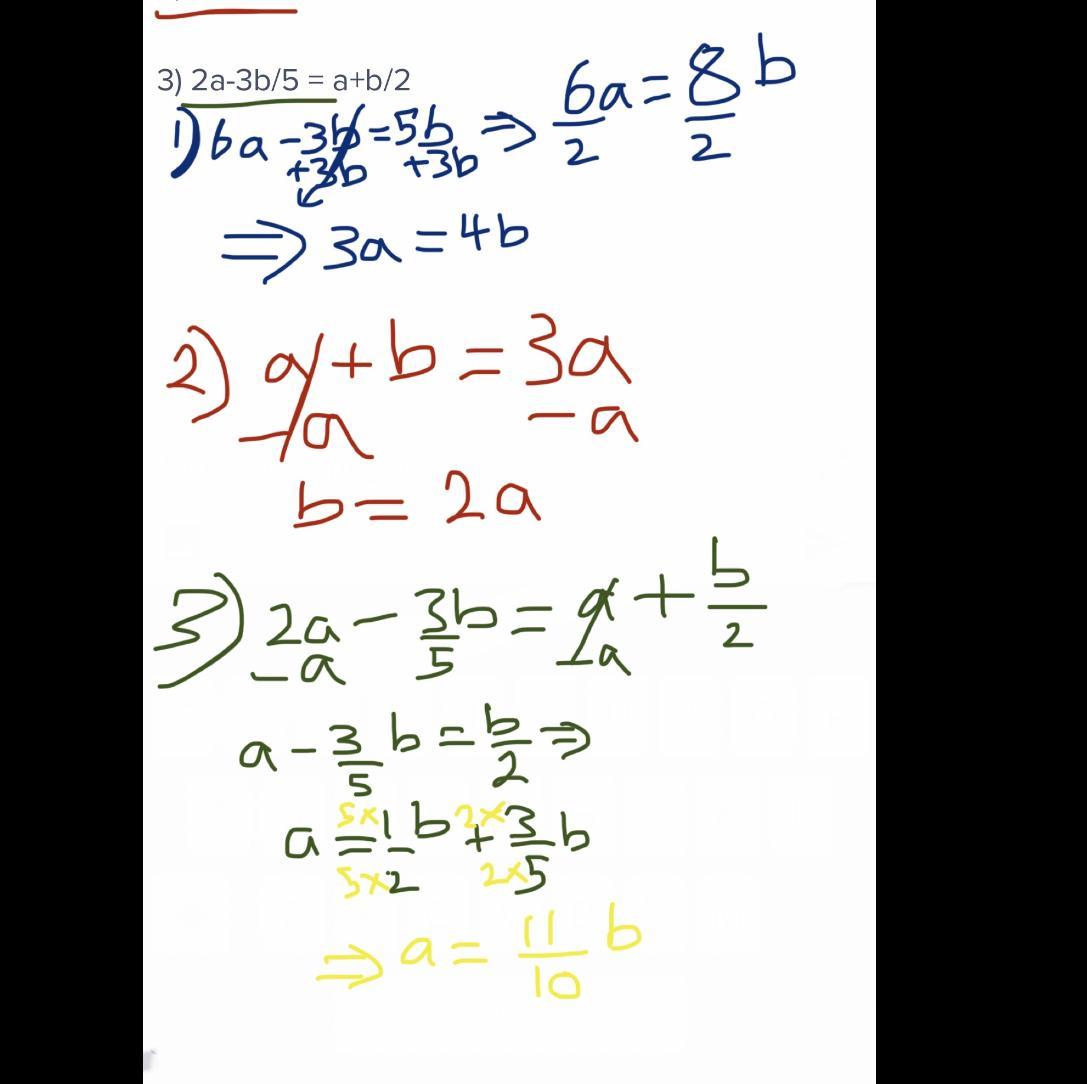 3) 2a-3b/5 = a+b/2
1) 6a -3b = 5b ⇒ 6a/2 = 8b/2
+3b +3b
⇒ 3a = 4b
2) a + b = 3a
-a -a
b = 2a
3) 2a - 3/5 b = a + b/2
-a -a
a - 3/5 b = b/2 ⇒
a = 5×1/5×2 b + 2×3/2×5 b
⇒ a = 11/10 b